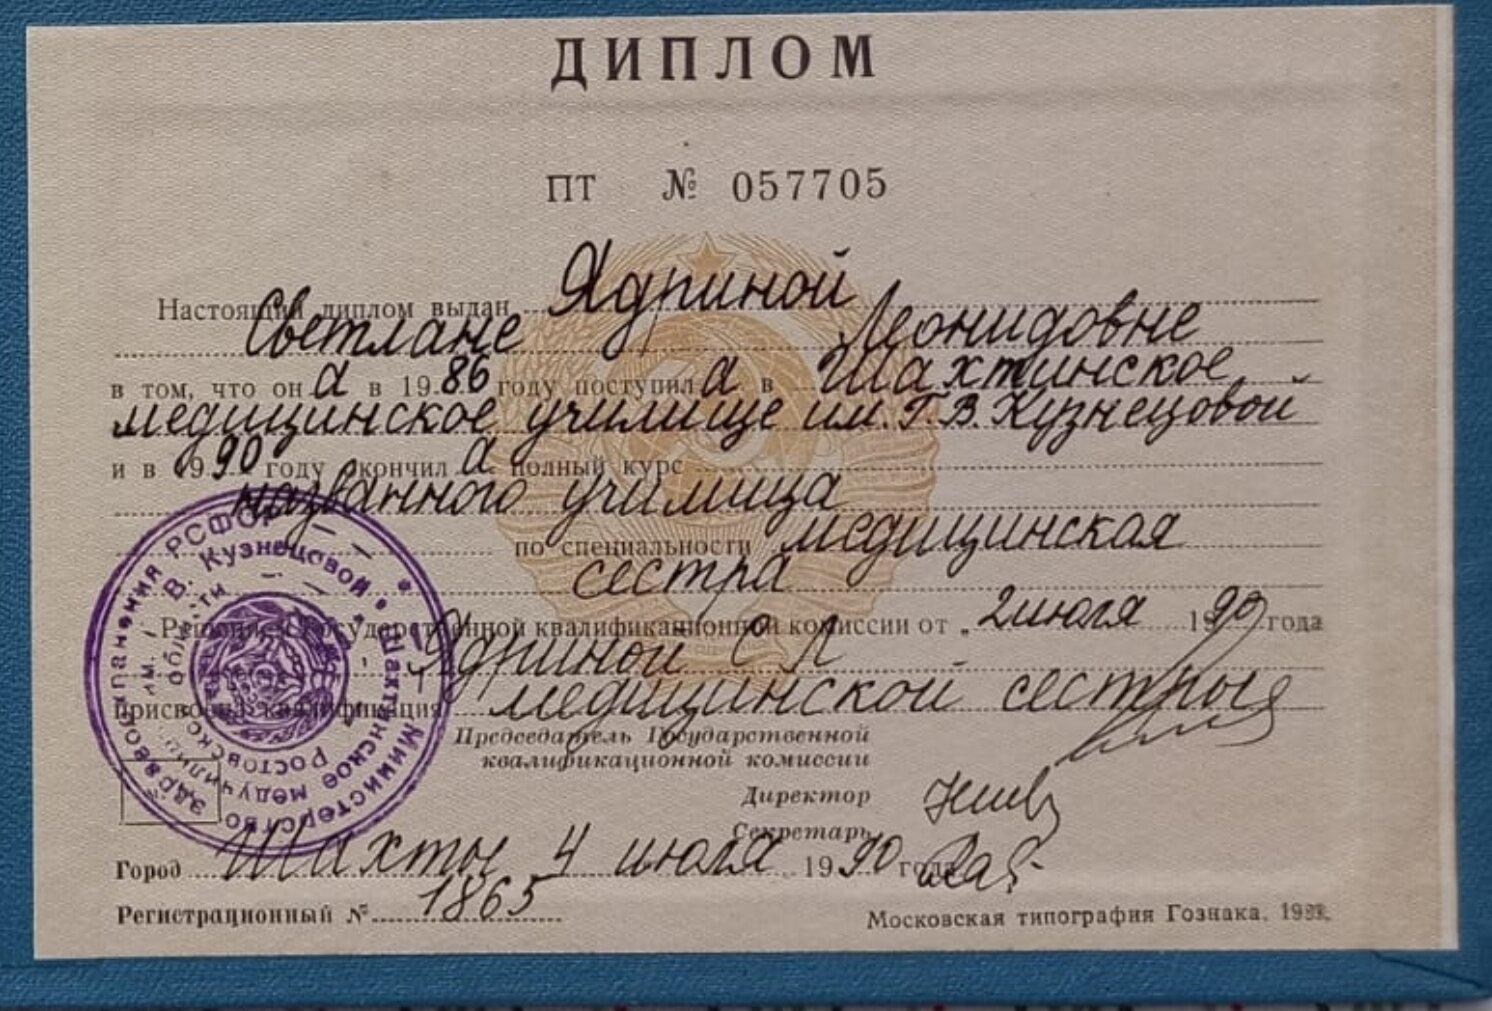 ДИПЛОМ
ПТ № 057705
Настоящий диплом выдан Ядриной
Светлане Леонидовне
в том, что он а в 1986 году поступил а в Шахтинское
медицинское училище им. Г. В. Кузнецовой
и в 1990 году окончил а полный курс
названного училища
по специальности медицинская
сестра
Решением Государственной квалификационной комиссии от „ 2 июля 1990 года
Ядриной С Л
присвоена квалификация медицинской сестры
Председатель Государственной
квалификационной комиссии
Директор
Секретарь
Город Шахты 4 июля 1990 года
Регистрационный № 1865
Московская типография Гознака.
Министерство здравоохранения РСФСР
Шахтинское медучилище им. Г. В. Кузнецовой
Ростовской области